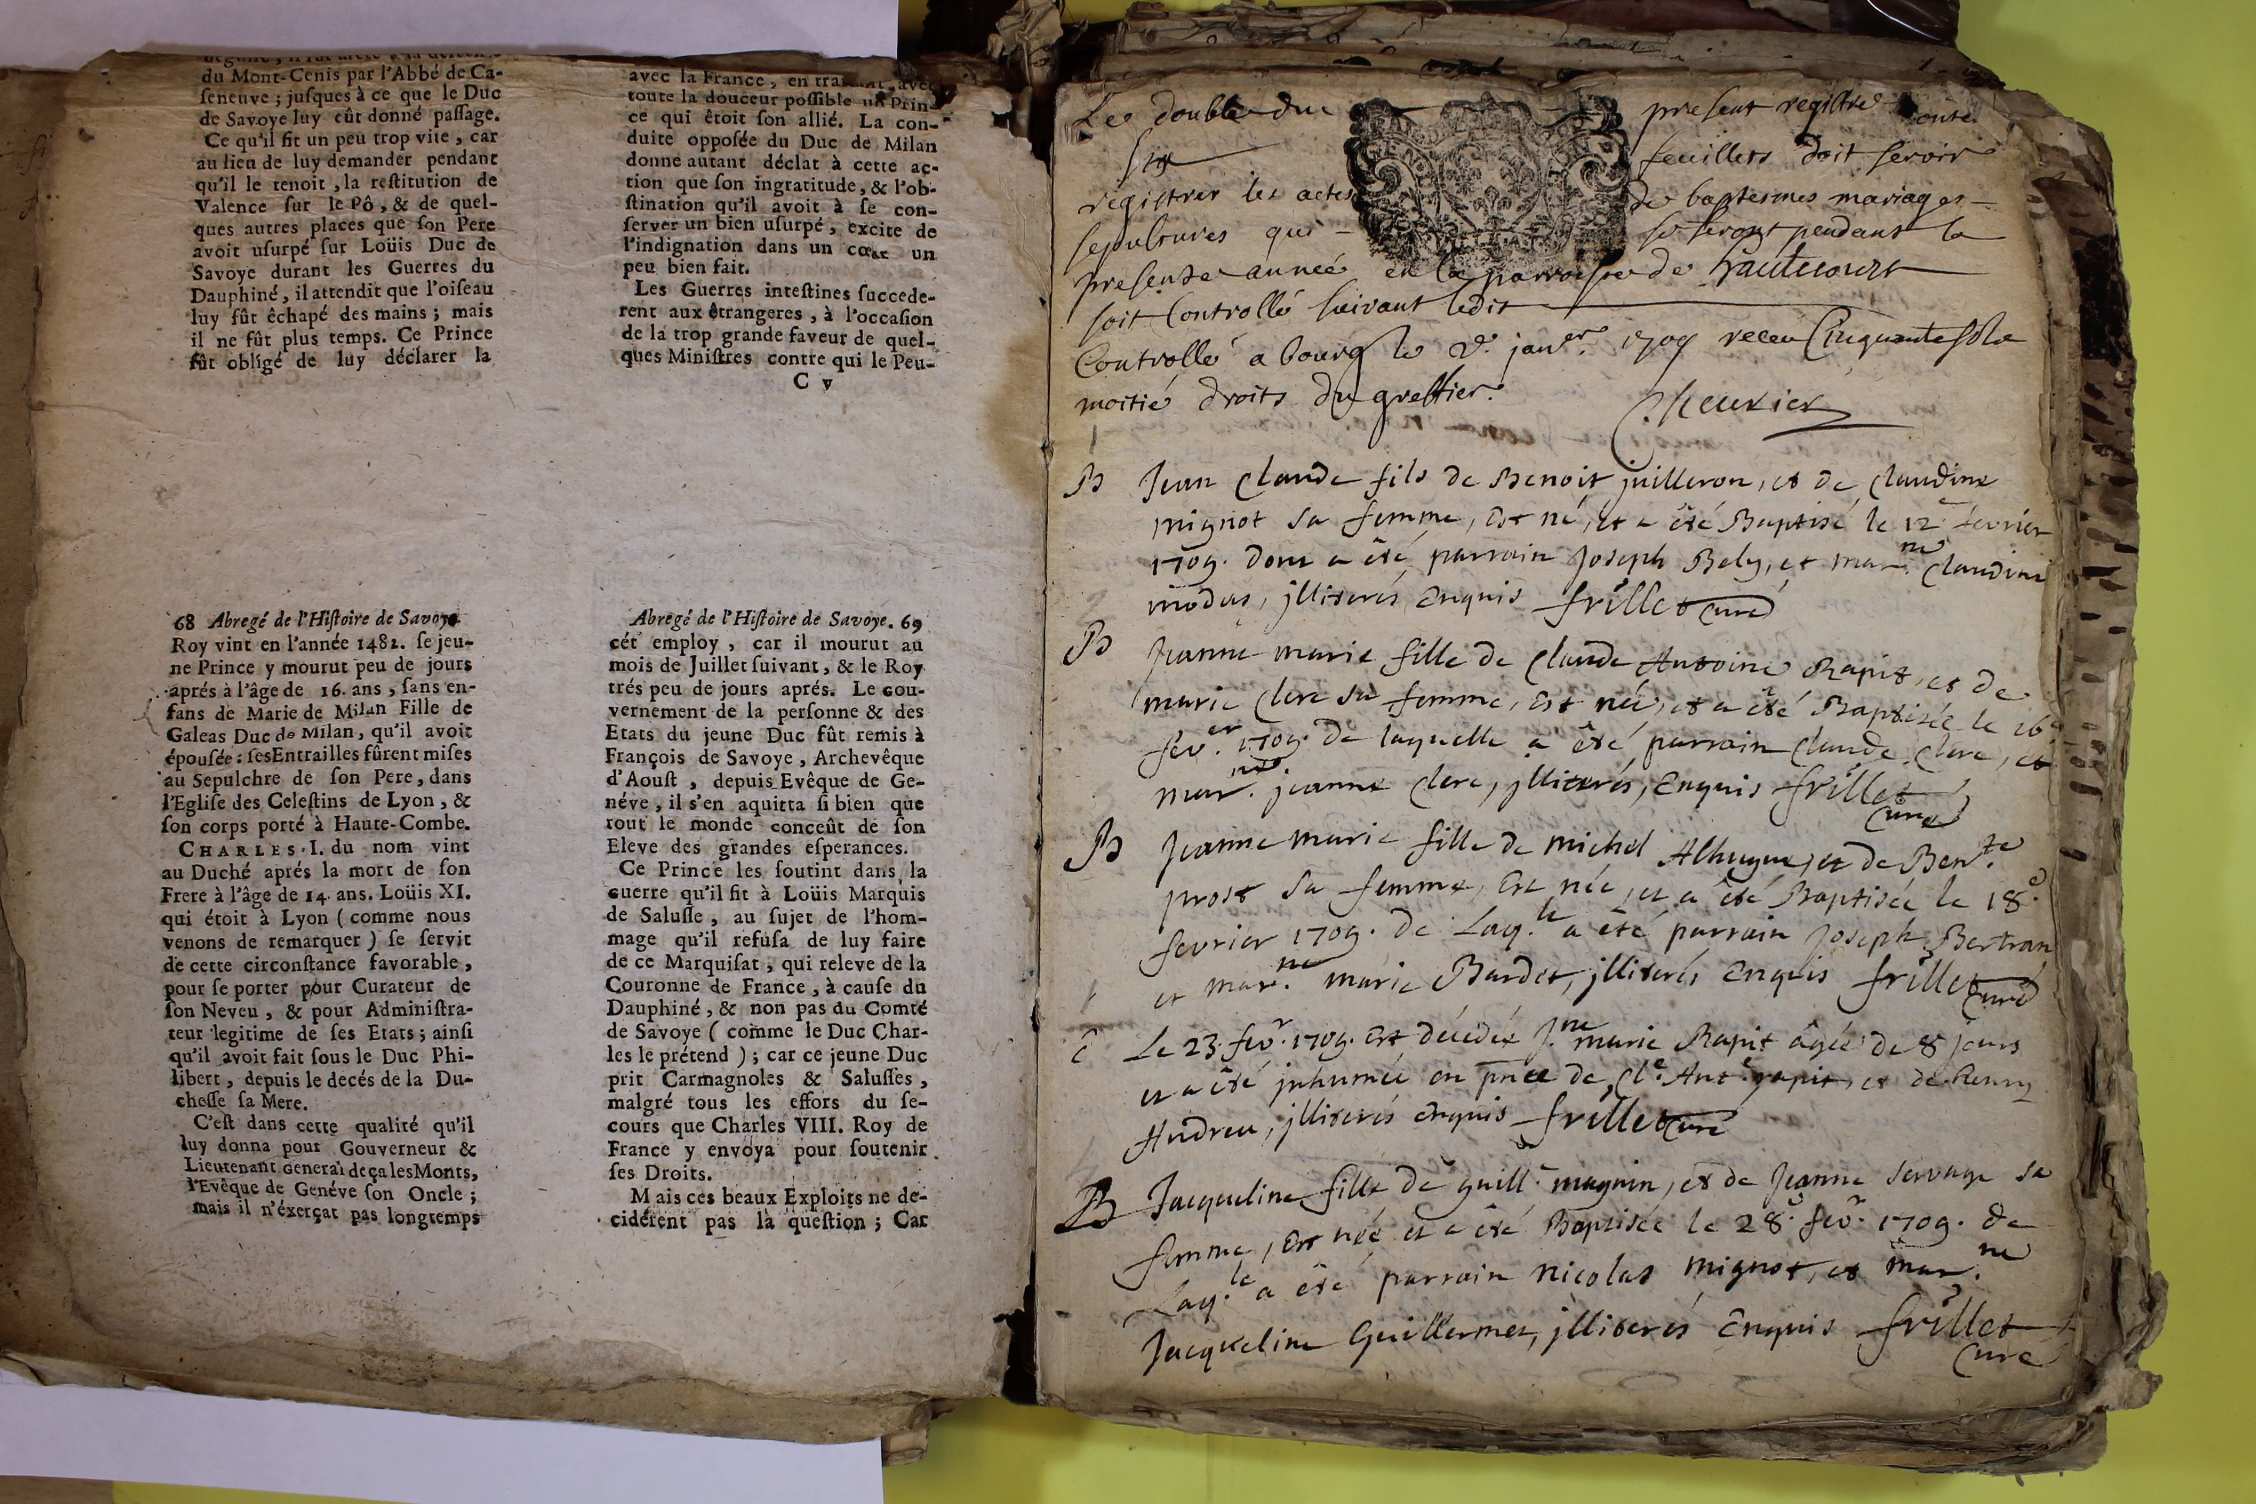 du Mont-Cenis par l'Abbé de Ca-
ſeneuve ; juſques à ce que le Duc
de Savoye luy eût donné paſſage.
Ce qu'il fit un peu trop vite, car
au lieu de luy demander pendant
qu'il le tenoit, la reſtitution de
Valence ſur le Pô, & de quel-
ques autres places que ſon Pere
avoit uſurpé ſur Loüis Duc de
Savoye durant les Guerres du
Dauphiné, il attendit que l'oiſeau
luy fût êchapé des mains ; mais
il ne fût plus temps. Ce Prince
fût obligé de luy déclarer la
avec la France, en avec
toute la douceur poſſible un Prin-
ce qui êtoit ſon allié. La con-
duite oppoſée du Duc de Milan
donne autant déclat à cette ac-
tion que ſon ingratitude, & l'ob-
ſtination qu'il avoit à ſe con-
ſerver un bien uſurpé, excite de
l'indignation dans un cœur un
peu bien fait.
Les Guerres inteſtines ſuccede-
rent aux êtrangeres, à l'occaſion
de la trop grande faveur de quel-
ques Miniſtres contre qui le Peu-
C v
68 Abregé de l'Hiſtoire de Savoye
Roy vint en l'année 1482. ſe jeu-
ne Prince y mourut peu de jours
aprés à l'âge de 16. ans, ſans en-
fans de Marie de Milan Fille de
Galeas Duc de Milan, qu'il avoit
épouſée : ſesEntrailles fûrent miſes
au Sepulchre de ſon Pere, dans
l'Egliſe des Celeſtins de Lyon, &
ſon corps porté à Haute-Combe.
CHARLES I. du nom vint
au Duché aprés la mort de ſon
Frere à l'âge de 14. ans. Loüis XI.
qui étoit à Lyon ( comme nous
venons de remarquer ) ſe ſervit
de cette circonſtance favorable,
pour ſe porter pour Curateur de
ſon Neveu, & pour Adminiſtra-
teur legitime de ſes Etats ; ainſi
qu'il avoit fait ſous le Duc Phi-
libert, depuis le decés de la Du-
cheſſe ſa Mere.
C'eſt dans cette qualité qu'il
luy donna pour Gouverneur &
Lieutenant General deça lesMonts,
l'Evêque de Genéve ſon Oncle ;
mais il n'éxerçat pas longtemps
Abregé de l'Hiſtoire de Savoye. 69
cét employ, car il mourut au
mois de Juillet ſuivant, & le Roy
trés peu de jours aprés. Le gou-
vernement de la perſonne & des
Etats du jeune Duc fût remis à
François de Savoye, Archevêque
d'Aouſt, depuis Evêque de Ge-
néve, il s'en aquitta ſi bien que
tout le monde conceût de ſon
Eleve des grandes eſperances.
Ce Prince les ſoutint dans la
guerre qu'il fit à Loüis Marquis
de Saluſſe, au ſujet de l'hom-
mage qu'il refuſa de luy faire
de ce Marquiſat, qui releve de la
Couronne de France, à cauſe du
Dauphiné, & non pas du Comté
de Savoye ( comme le Duc Char-
les le prétend ) ; car ce jeune Duc
prit Carmagnoles & Saluſſes,
malgré tous les effors du ſe-
cours que Charles VIII. Roy de
France y envoya pour ſoutenir
ſes Droits.
Mais ces beaux Exploits ne de-
cidérent pas la queſtion ; Car
Le double du present registre
six feuillets doit servir
registrer les actes de baptesmes mariages
sepultures qui se feront pendant la
presente année en la parroisse de hautecourt
soit Controllé suivant ledit
Controllé a bourg le janer. 1709 receu Cinquante sols
moitié droits du greffier.
B Jean Claude fils de Benoit juilleron, et de Claudine
mignot sa femme, est né, et a été Baptisé le 12e fevrier
1709. dont a été parrain Joseph Bely, et marne. Claudine
modas, jlliterés Enquis frillet curé
B Jeanne marie fille de Claude Antoine Rapit, et de
marie Clerc sa femme, est née, et a été Baptisée le 16e
fever. 1709. de laquelle a été parrain Claude Clerc, et
marne. jeanne Clerc, jlliterés, Enquis frillet
Curé
B Jeanne marie fille de michel Alhugue, et de Bente.
prost sa femme, est née, et a été Baptisée le 18e.
fevrier 1709. de Laqle. a été parrain Joseph Bertran
et marne. marie Bardet, jlliterés Enquis frillet Curé
Le 23. fevr. 1709. est décédée Jne. marie Rapit âgée de 8 jours
et a été jnhumée en pnce de Cle. Ante. rapit, et de henry
Andreu, jlliterés Enquis frillet Curé
B Jacqueline fille de guille. magnin, et de Jeanne servage sa
femme, est née et a été Baptisée le 28e. fevr. 1709. de
Laqle. a été parrain nicolas mignot, et marne.
Jacqueline Guillermet, jlliterés Enquis frillet
Curé